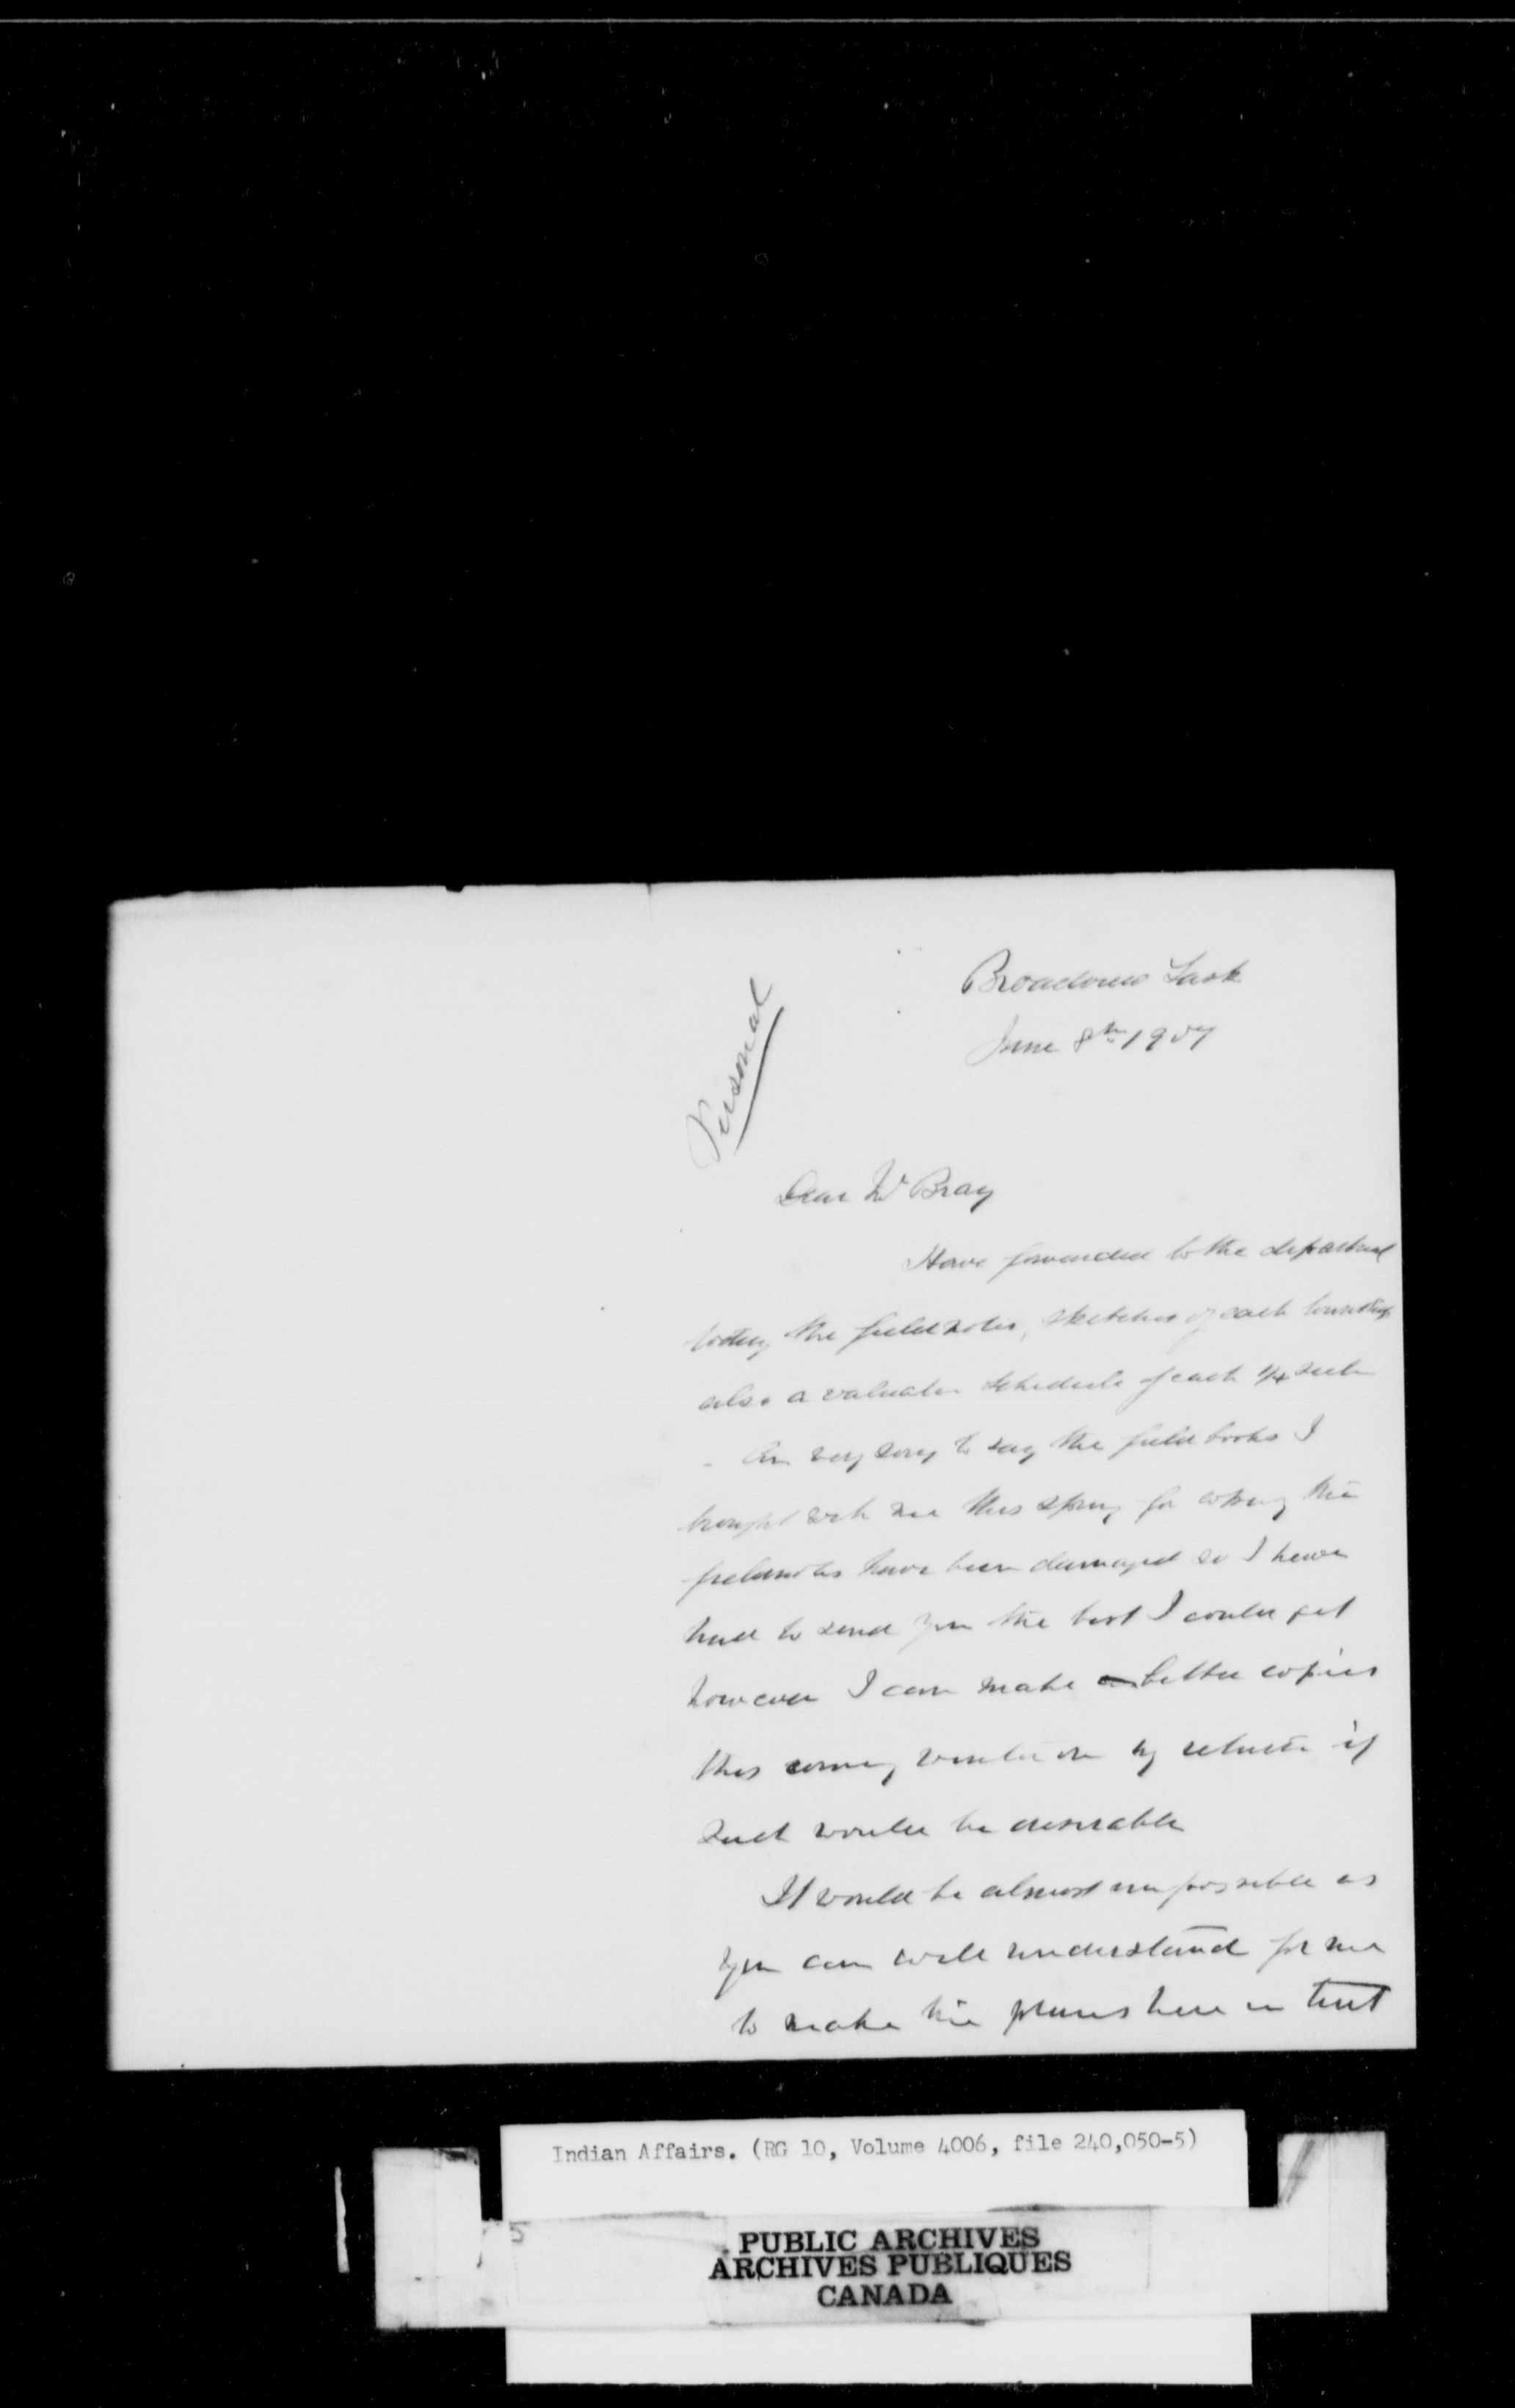 Personal
Broadview Sask
June 8th 1907
Dear Mr Bray
Have forwarded to the department
today the fieldnotes, sketches of each township
also a valuation schedule of each 1/4 sect
- Am very sorry to say the field books I
brought with me this spring for copying the
fieldnotes have been damaged so I have
had to send you the best I could get
however I can make a better copies
this coming winter on my return if
such would be desirable
It would be almost impossible as
you can well understand for me
to make the plans here in tent
Indian Affairs. (RG 10, Volume 4006, file 240,050-5)
5
PUBLIC ARCHIVES
ARCHIVES PUBLIQUES
CANADA